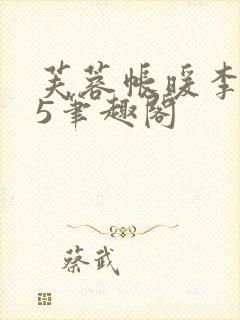 芙蓉帐暖李
5笔趣阁
蔡武